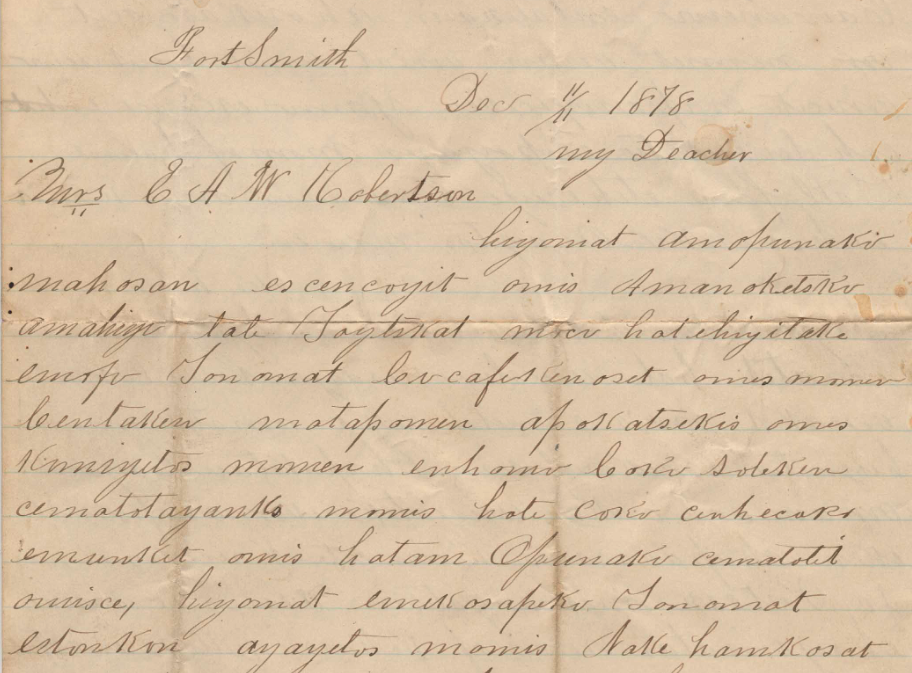 Fort Smith
Dec 11/11 1878
my Deacher
Mrs E A W Robertson
hiyomat amopunakv
mahosan escencoyit omis Amanoketskv
amahiye tate Toytskat mvcv hatehiyitake
emofv Tonomat Cvcafekenoset omes momen
Centaken matapomen apokatsekis omes
Komiyetos momen enhomv Cokv soleken
cematotayanks momis hate Cokv cenhecakv
emunket omis hatam Opunakv cematotit
omisce, hiyomat emekosapekv Tonomat
estonkon ayayetos momis Nake hamkosat